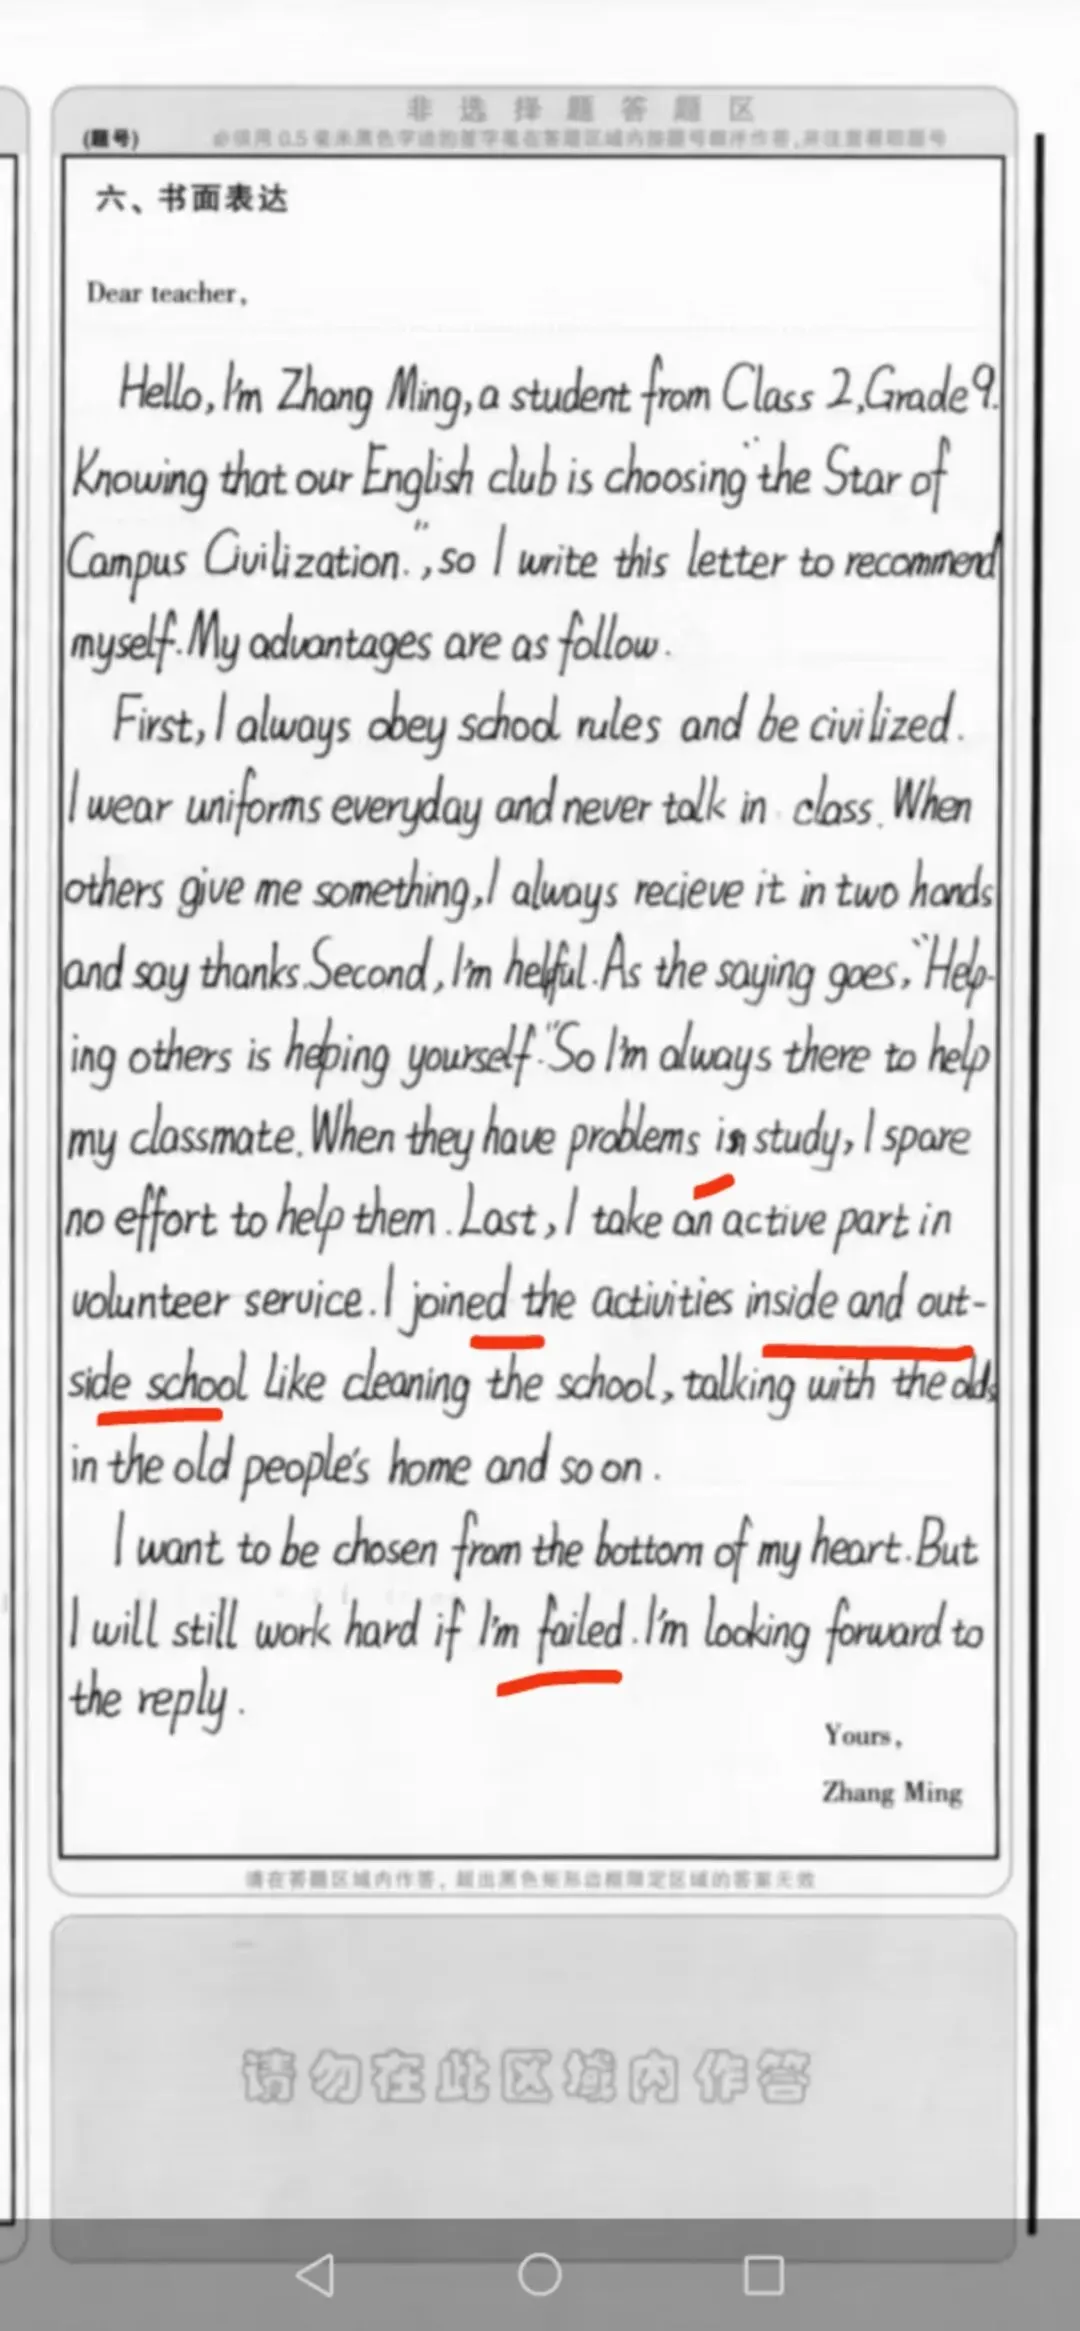 非选择题答题区
(题号) 必须用0.5毫米黑色字迹的签字笔在答题区域内按题号顺序作答,并注意看即题号
六、书面表达
Dear teacher,
Hello, I'm Zhang Ming, a student from Class 2, Grade 9.
Knowing that our English club is choosing "the Star of
Campus Civilization.", so I write this letter to recommend
myself. My advantages are as follow.
First, I always obey school rules and be civilized.
I wear uniforms everyday and never talk in class. When
others give me something, I always recieve it in two hands
and say thanks. Second, I'm helpful. As the saying goes, "Help-
ing others is helping yourself." So I'm always there to help
my classmate. When they have problems in study, I spare
no effort to help them. Last, I take an active part in
volunteer service. I joined the activities inside and out-
side school like cleaning the school, talking with the olds
in the old people's home and so on.
I want to be chosen from the bottom of my heart. But
I will still work hard if I'm failed. I'm looking forward to
the reply.
Yours,
Zhang Ming
请在答题区域内作答,超出黑色矩形边框限定区域的答案无效
请勿在此区域内作答